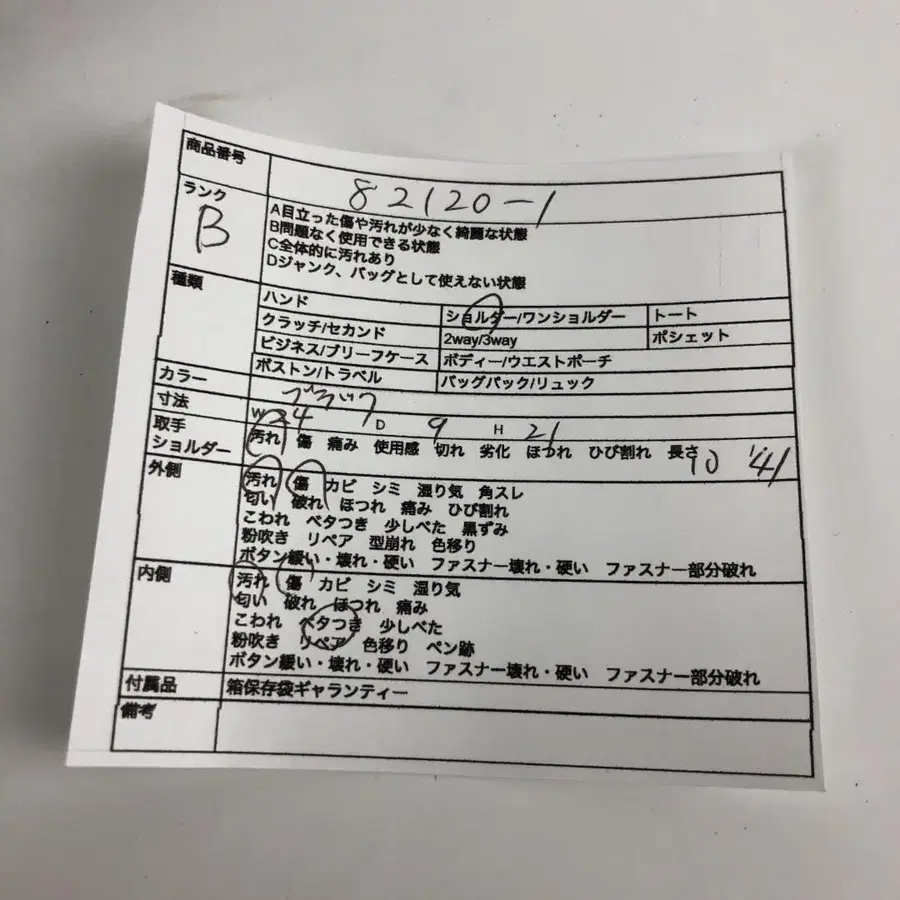 商品番号 82120-1
ランク B
A目立った傷や汚れが少なく綺麗な状態
B問題なく使用できる状態
C全体的に汚れあり
Dジャンク、バッグとして使えない状態
種類 ハンド ショルダー/ワンショルダー トート
クラッチ/セカンド 2way/3way ポシェット
ビジネス/ブリーフケース ボディー/ウエストポーチ
ボストン/トラベル バッグパック/リュック
カラー ブラック
寸法 W 24 D 9 H 21
取手 ショルダー 汚れ 傷 痛み 使用感 切れ 劣化 ほつれ ひび割れ 長さ
外側 汚れ 傷 カビ シミ 湿り気 角スレ
匂い 破れ ほつれ 痛み ひび割れ
こわれ ベタつき 少しべた 黒ずみ
粉吹き リペア 型崩れ 色移り
ボタン緩い・壊れ・硬い ファスナー壊れ・硬い ファスナー部分破れ
内側 汚れ 傷 カビ シミ 湿り気
匂い 破れ ほつれ 痛み
こわれ ベタつき 少しべた
粉吹き リペア 色移り ペン跡
ボタン緩い・壊れ・硬い ファスナー壊れ・硬い ファスナー部分破れ
付属品 箱保存袋ギャランティー
備考